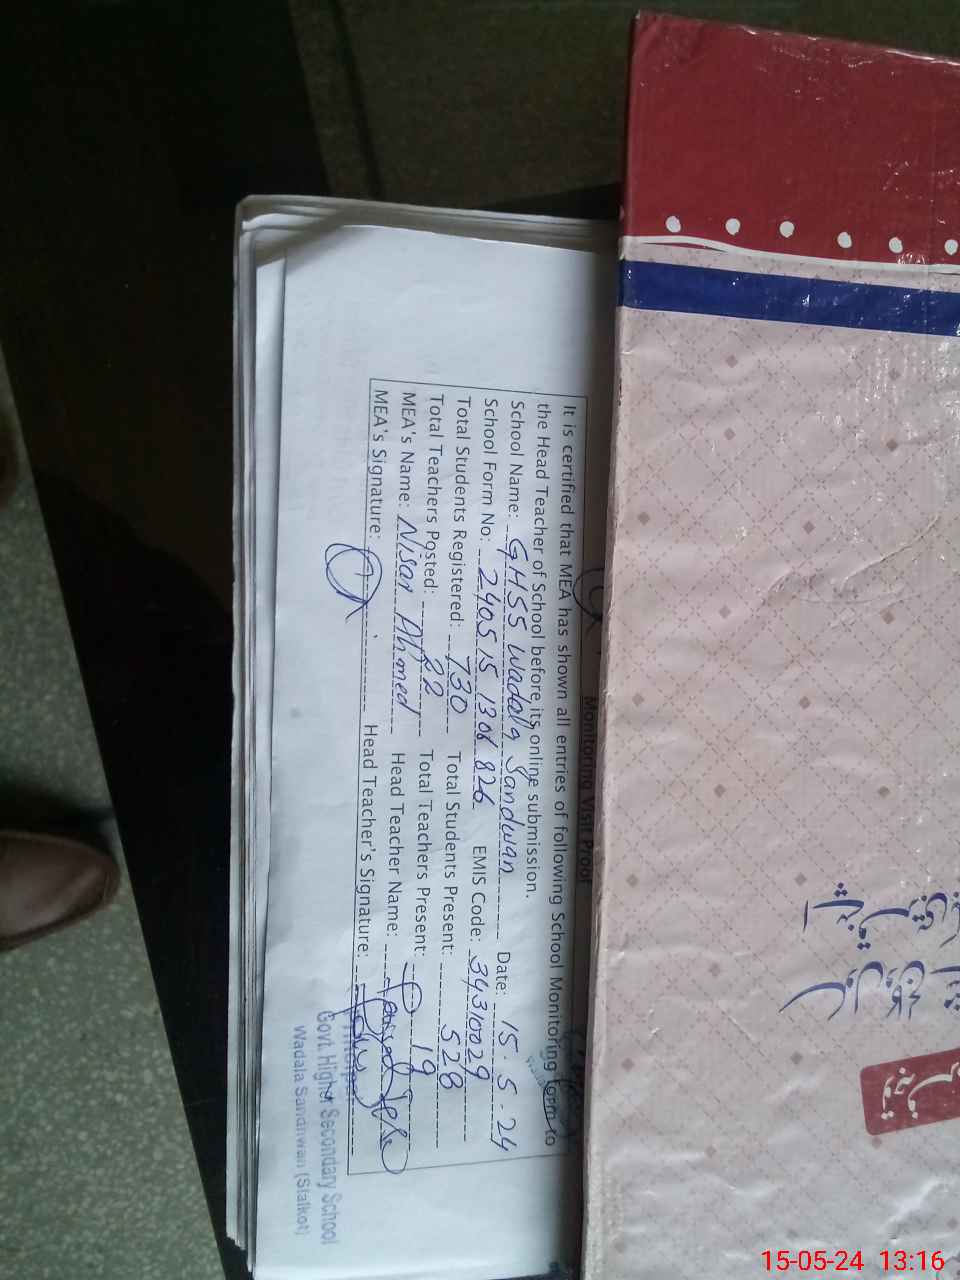 Monitoring Visit Proof
It is certified that MEA has shown all entries of following School Monitoring form to
the Head Teacher of School before its online submission.
School Name: GHSS Wadala Sandwan Date: 15-5-24
School Form No: 2405 15 1306 826 EMIS Code: 34310029
Total Students Registered: 730 Total Students Present: 528
Total Teachers Posted: 22 Total Teachers Present: 19
MEA's Name: Nisar Ahmed Head Teacher Name:
MEA's Signature: Head Teacher's Signature:
Govt. Higher Secondary School
Wadala Sandhwan (Sialkot)
15-05-24 13:16